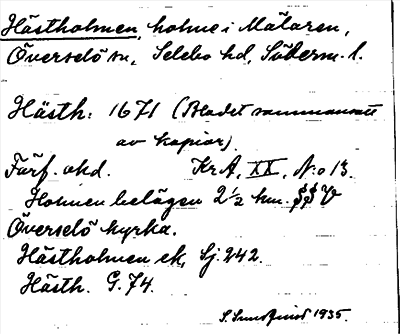 Hästholmen, holme i Mälaren,
Överselö sn, Selebo hd, Söderm. l.
Hästh: 1671 (Bladet sammansatt
av kopior)
Förf. okd. KrA, XX, N:o 13.
Holmen belägen 2½ km. SSV
Överselö kyrka.
Hästholmen ek, Sj. 242.
Hästh. G. 74.
S. Sundquist 1935.